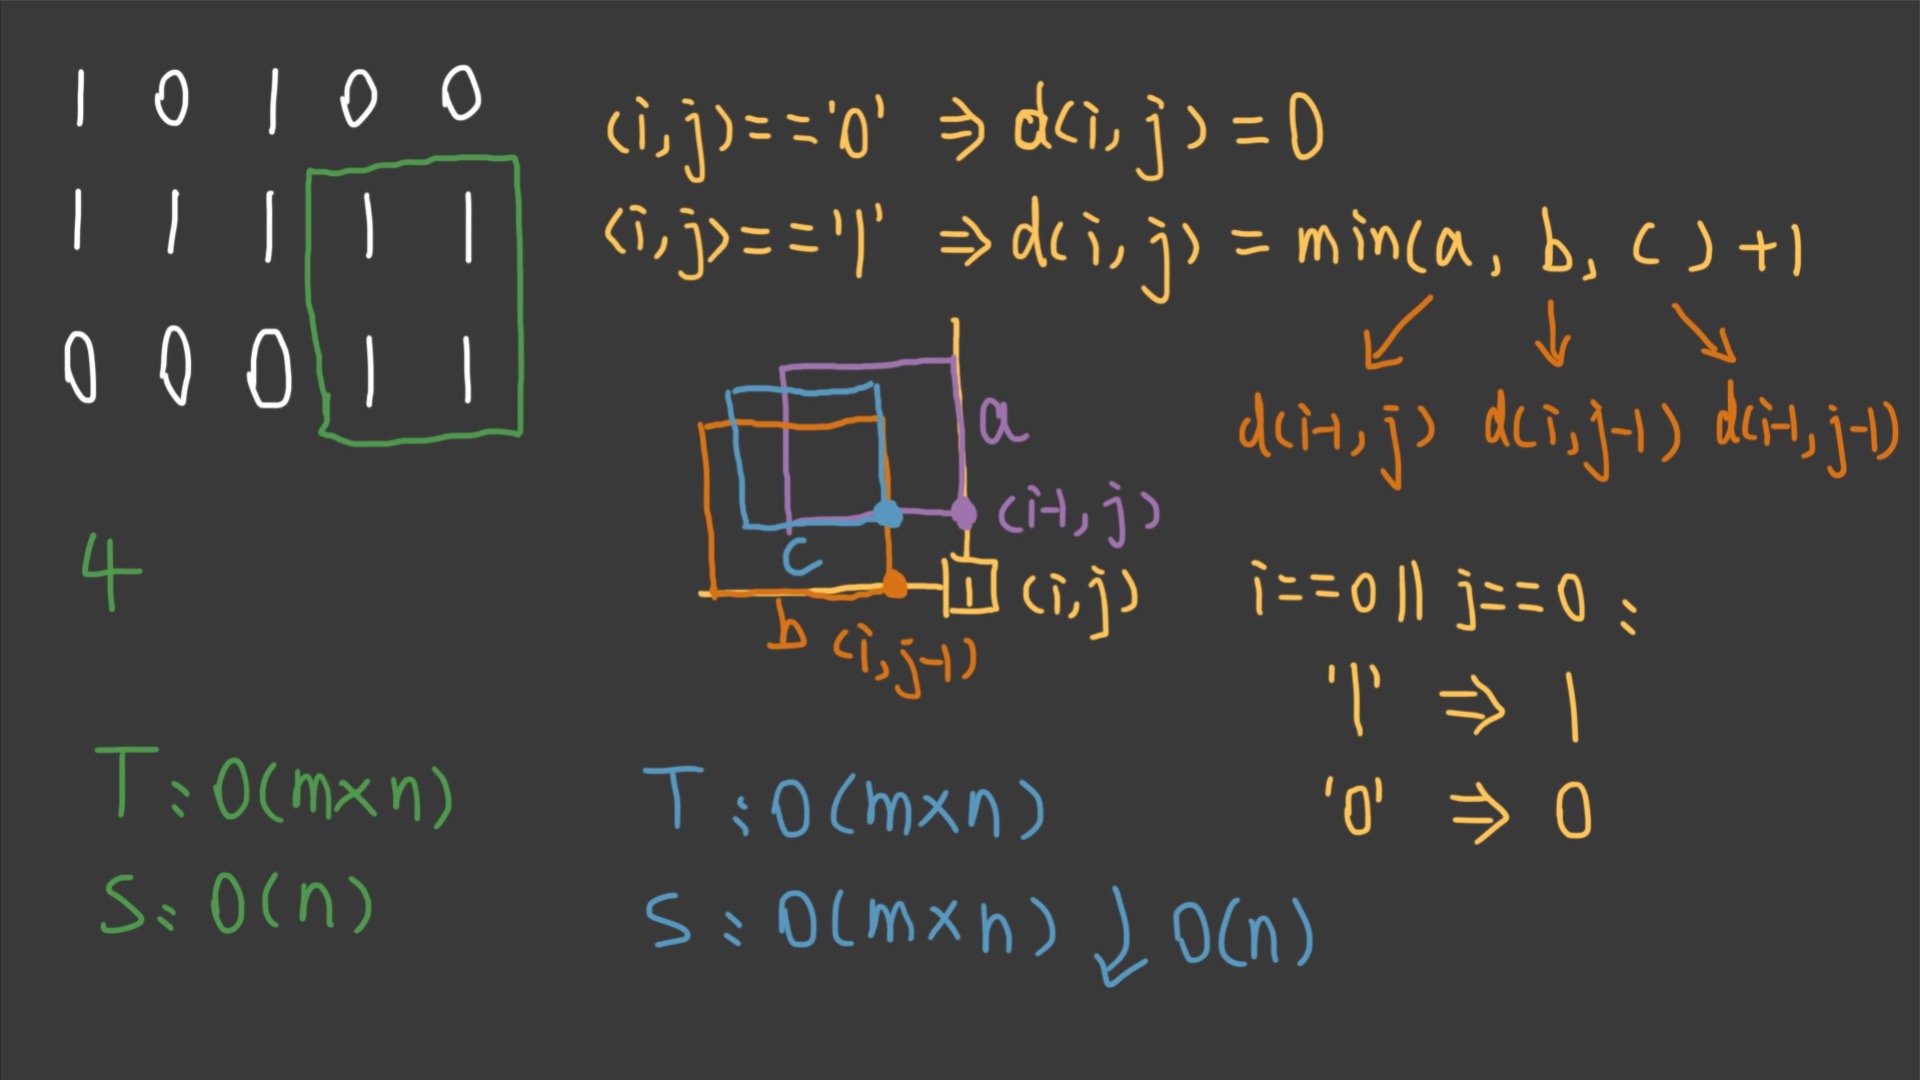 1 0 1 0 0
1 1 1 1 1
0 0 0 1 1
4
T: O(m×n)
S: O(n)
(i,j)=='0' ⇒ d(i,j) = 0
(i,j)=='1' ⇒ d(i,j) = min(a, b, c) +1
d(i-1, j) d(i, j-1) d(i-1, j-1)
a
(i-1, j)
c
1 (i,j)
b (i,j-1)
i==0 || j==0 :
'1' ⇒ 1
'0' ⇒ 0
T: O(m×n)
S: O(m×n) ↓ O(n)